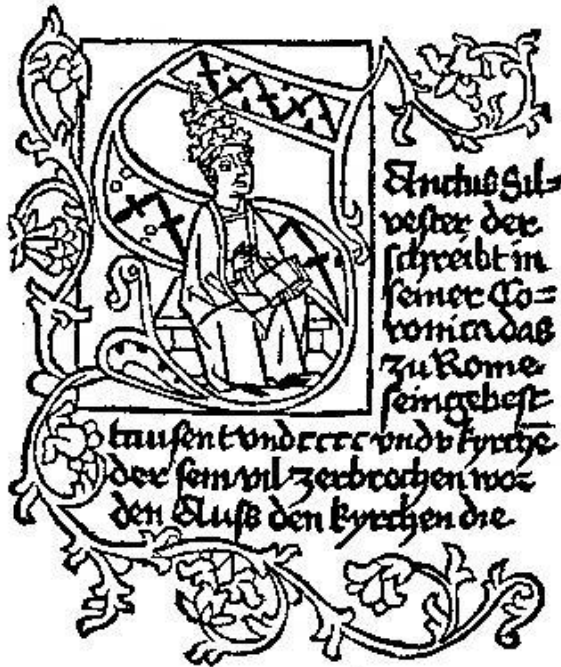 Sanctus Sil=
vester der
schreibt in
seiner Co=
ronica das
zu Rome
sein gebest
tausent vnd cccc vnd v kyrchē
der sein vil zerbrochen wor
den Auss den kyrchen die